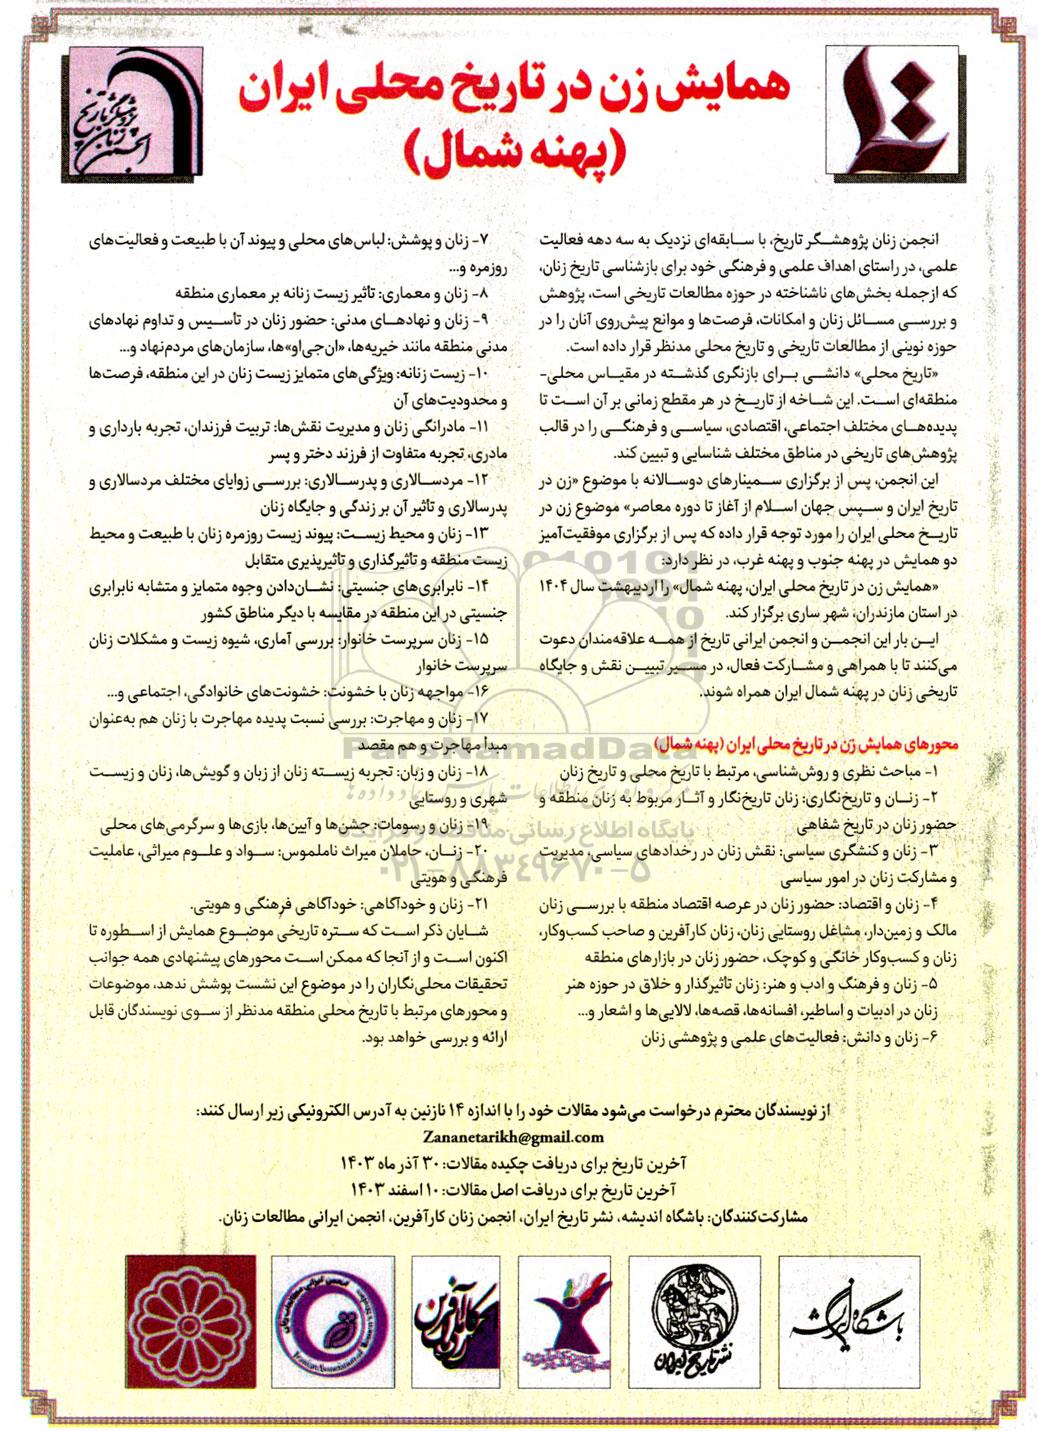 همایش زن در تاریخ محلی ایران
(پهنه شمال)
انجمن زنان پژوهشگر تاریخ
انجمن زنان پژوهشگر تاریخ، با سابقه‌ای نزدیک به سه دهه فعالیت
علمی، در راستای اهداف علمی و فرهنگی خود برای بازشناسی تاریخ زنان،
که ازجمله بخش‌های ناشناخته در حوزه مطالعات تاریخی است، پژوهش
و بررسی مسائل زنان و امکانات، فرصت‌ها و موانع پیش‌روی آنان را در
حوزه نوینی از مطالعات تاریخی و تاریخ محلی مدنظر قرار داده است.
«تاریخ محلی» دانشی برای بازنگری گذشته در مقیاس محلی-
منطقه‌ای است. این شاخه از تاریخ در هر مقطع زمانی بر آن است تا
پدیده‌های مختلف اجتماعی، اقتصادی، سیاسی و فرهنگی را در قالب
پژوهش‌های تاریخی در مناطق مختلف شناسایی و تبیین کند.
این انجمن، پس از برگزاری سمینارهای دوسالانه با موضوع «زن در
تاریخ ایران و سپس جهان اسلام از آغاز تا دوره معاصر» موضوع زن در
تاریخ محلی ایران را مورد توجه قرار داده که پس از برگزاری موفقیت‌آمیز
دو همایش در پهنه جنوب و پهنه غرب، در نظر دارد:
«همایش زن در تاریخ محلی ایران، پهنه شمال» را اردیبهشت سال ۱۴۰۴
در استان مازندران، شهر ساری برگزار کند.
این بار این انجمن و انجمن ایرانی تاریخ از همه علاقه‌مندان دعوت
می‌کنند تا با همراهی و مشارکت فعال، در مسیر تبیین نقش و جایگاه
تاریخی زنان در پهنه شمال ایران همراه شوند.
محورهای همایش زن در تاریخ محلی ایران (پهنه شمال)
۱- مباحث نظری و روش‌شناسی، مرتبط با تاریخ محلی و تاریخ زنان
۲- زنان و تاریخ‌نگاری: زنان تاریخ‌نگار و آثار مربوط به زنان منطقه و
حضور زنان در تاریخ شفاهی
۳- زنان و کنشگری سیاسی: نقش زنان در رخدادهای سیاسی، مدیریت
و مشارکت زنان در امور سیاسی
۴- زنان و اقتصاد: حضور زنان در عرصه اقتصاد منطقه با بررسی زنان
مالک و زمین‌دار، مشاغل روستایی زنان، زنان کارآفرین و صاحب کسب‌وکار،
زنان و کسب‌وکار خانگی و کوچک، حضور زنان در بازارهای منطقه
۵- زنان و فرهنگ و ادب و هنر: زنان تاثیرگذار و خلاق در حوزه هنر
زنان در ادبیات و اساطیر، افسانه‌ها، قصه‌ها، لالایی‌ها و اشعار و...
۶- زنان و دانش: فعالیت‌های علمی و پژوهشی زنان
۷- زنان و پوشش: لباس‌های محلی و پیوند آن با طبیعت و فعالیت‌های
روزمره و...
۸- زنان و معماری: تاثیر زیست زنانه بر معماری منطقه
۹- زنان و نهادهای مدنی: حضور زنان در تأسیس و تداوم نهادهای
مدنی منطقه مانند خیریه‌ها، «ان‌جی‌او»ها، سازمان‌های مردم‌نهاد و...
۱۰- زیست زنانه: ویژگی‌های متمایز زیست زنان در این منطقه، فرصت‌ها
و محدودیت‌های آن
۱۱- مادرانگی زنان و مدیریت نقش‌ها: تربیت فرزندان، تجربه بارداری و
مادری، تجربه متفاوت از فرزند دختر و پسر
۱۲- مردسالاری و پدرسالاری: بررسی زوایای مختلف مردسالاری و
پدرسالاری و تأثیر آن بر زندگی و جایگاه زنان
۱۳- زنان و محیط زیست: پیوند زیست روزمره زنان با طبیعت و محیط
زیست منطقه و تاثیرگذاری و تاثیرپذیری متقابل
۱۴- نابرابری‌های جنسیتی: نشان‌دادن وجوه متمایز و متشابه نابرابری
جنسیتی در این منطقه در مقایسه با دیگر مناطق کشور
۱۵- زنان سرپرست خانوار: بررسی آماری، شیوه زیست و مشکلات زنان
سرپرست خانوار
۱۶- مواجهه زنان با خشونت: خشونت‌های خانوادگی، اجتماعی و...
۱۷- زنان و مهاجرت: بررسی نسبت پدیده مهاجرت با زنان هم به‌عنوان
مبدأ مهاجرت و هم مقصد
۱۸- زنان و زبان: تجربه زیسته زنان از زبان و گویش‌ها، زنان و زیست
شهری و روستایی
۱۹- زنان و رسومات: جشن‌ها و آیین‌ها، بازی‌ها و سرگرمی‌های محلی
۲۰- زنان، حاملان میراث ناملموس: سواد و علوم میراثی، عاملیت
فرهنگی و هویتی
۲۱- زنان و خودآگاهی: خودآگاهی فرهنگی و هویتی.
شایان ذکر است که ستره تاریخی موضوع همایش از اسطوره تا
اکنون است و از آنجا که ممکن است محورهای پیشنهادی همه جوانب
تحقیقات محلی‌نگاران را در موضوع این نشست پوشش ندهد، موضوعات
و محورهای مرتبط با تاریخ محلی منطقه مدنظر از سوی نویسندگان قابل
ارائه و بررسی خواهد بود.
ParsNamadData
پایگاه اطلاع رسانی مناقصه و مزایده
۰۲۱-۸۸۳۴۹۶۷۰-۵
از نویسندگان محترم درخواست می‌شود مقالات خود را با اندازه ۱۴ نازنین به آدرس الکترونیکی زیر ارسال کنند:
Zananetarikh@gmail.com
آخرین تاریخ برای دریافت چکیده مقالات: ۳۰ آذر ماه ۱۴۰۳
آخرین تاریخ برای دریافت اصل مقالات: ۱۰ اسفند ۱۴۰۳
مشارکت‌کنندگان: باشگاه اندیشه، نشر تاریخ ایران، انجمن زنان کارآفرین، انجمن ایرانی مطالعات زنان.
باشگاه اندیشه
نشر تاریخ ایران